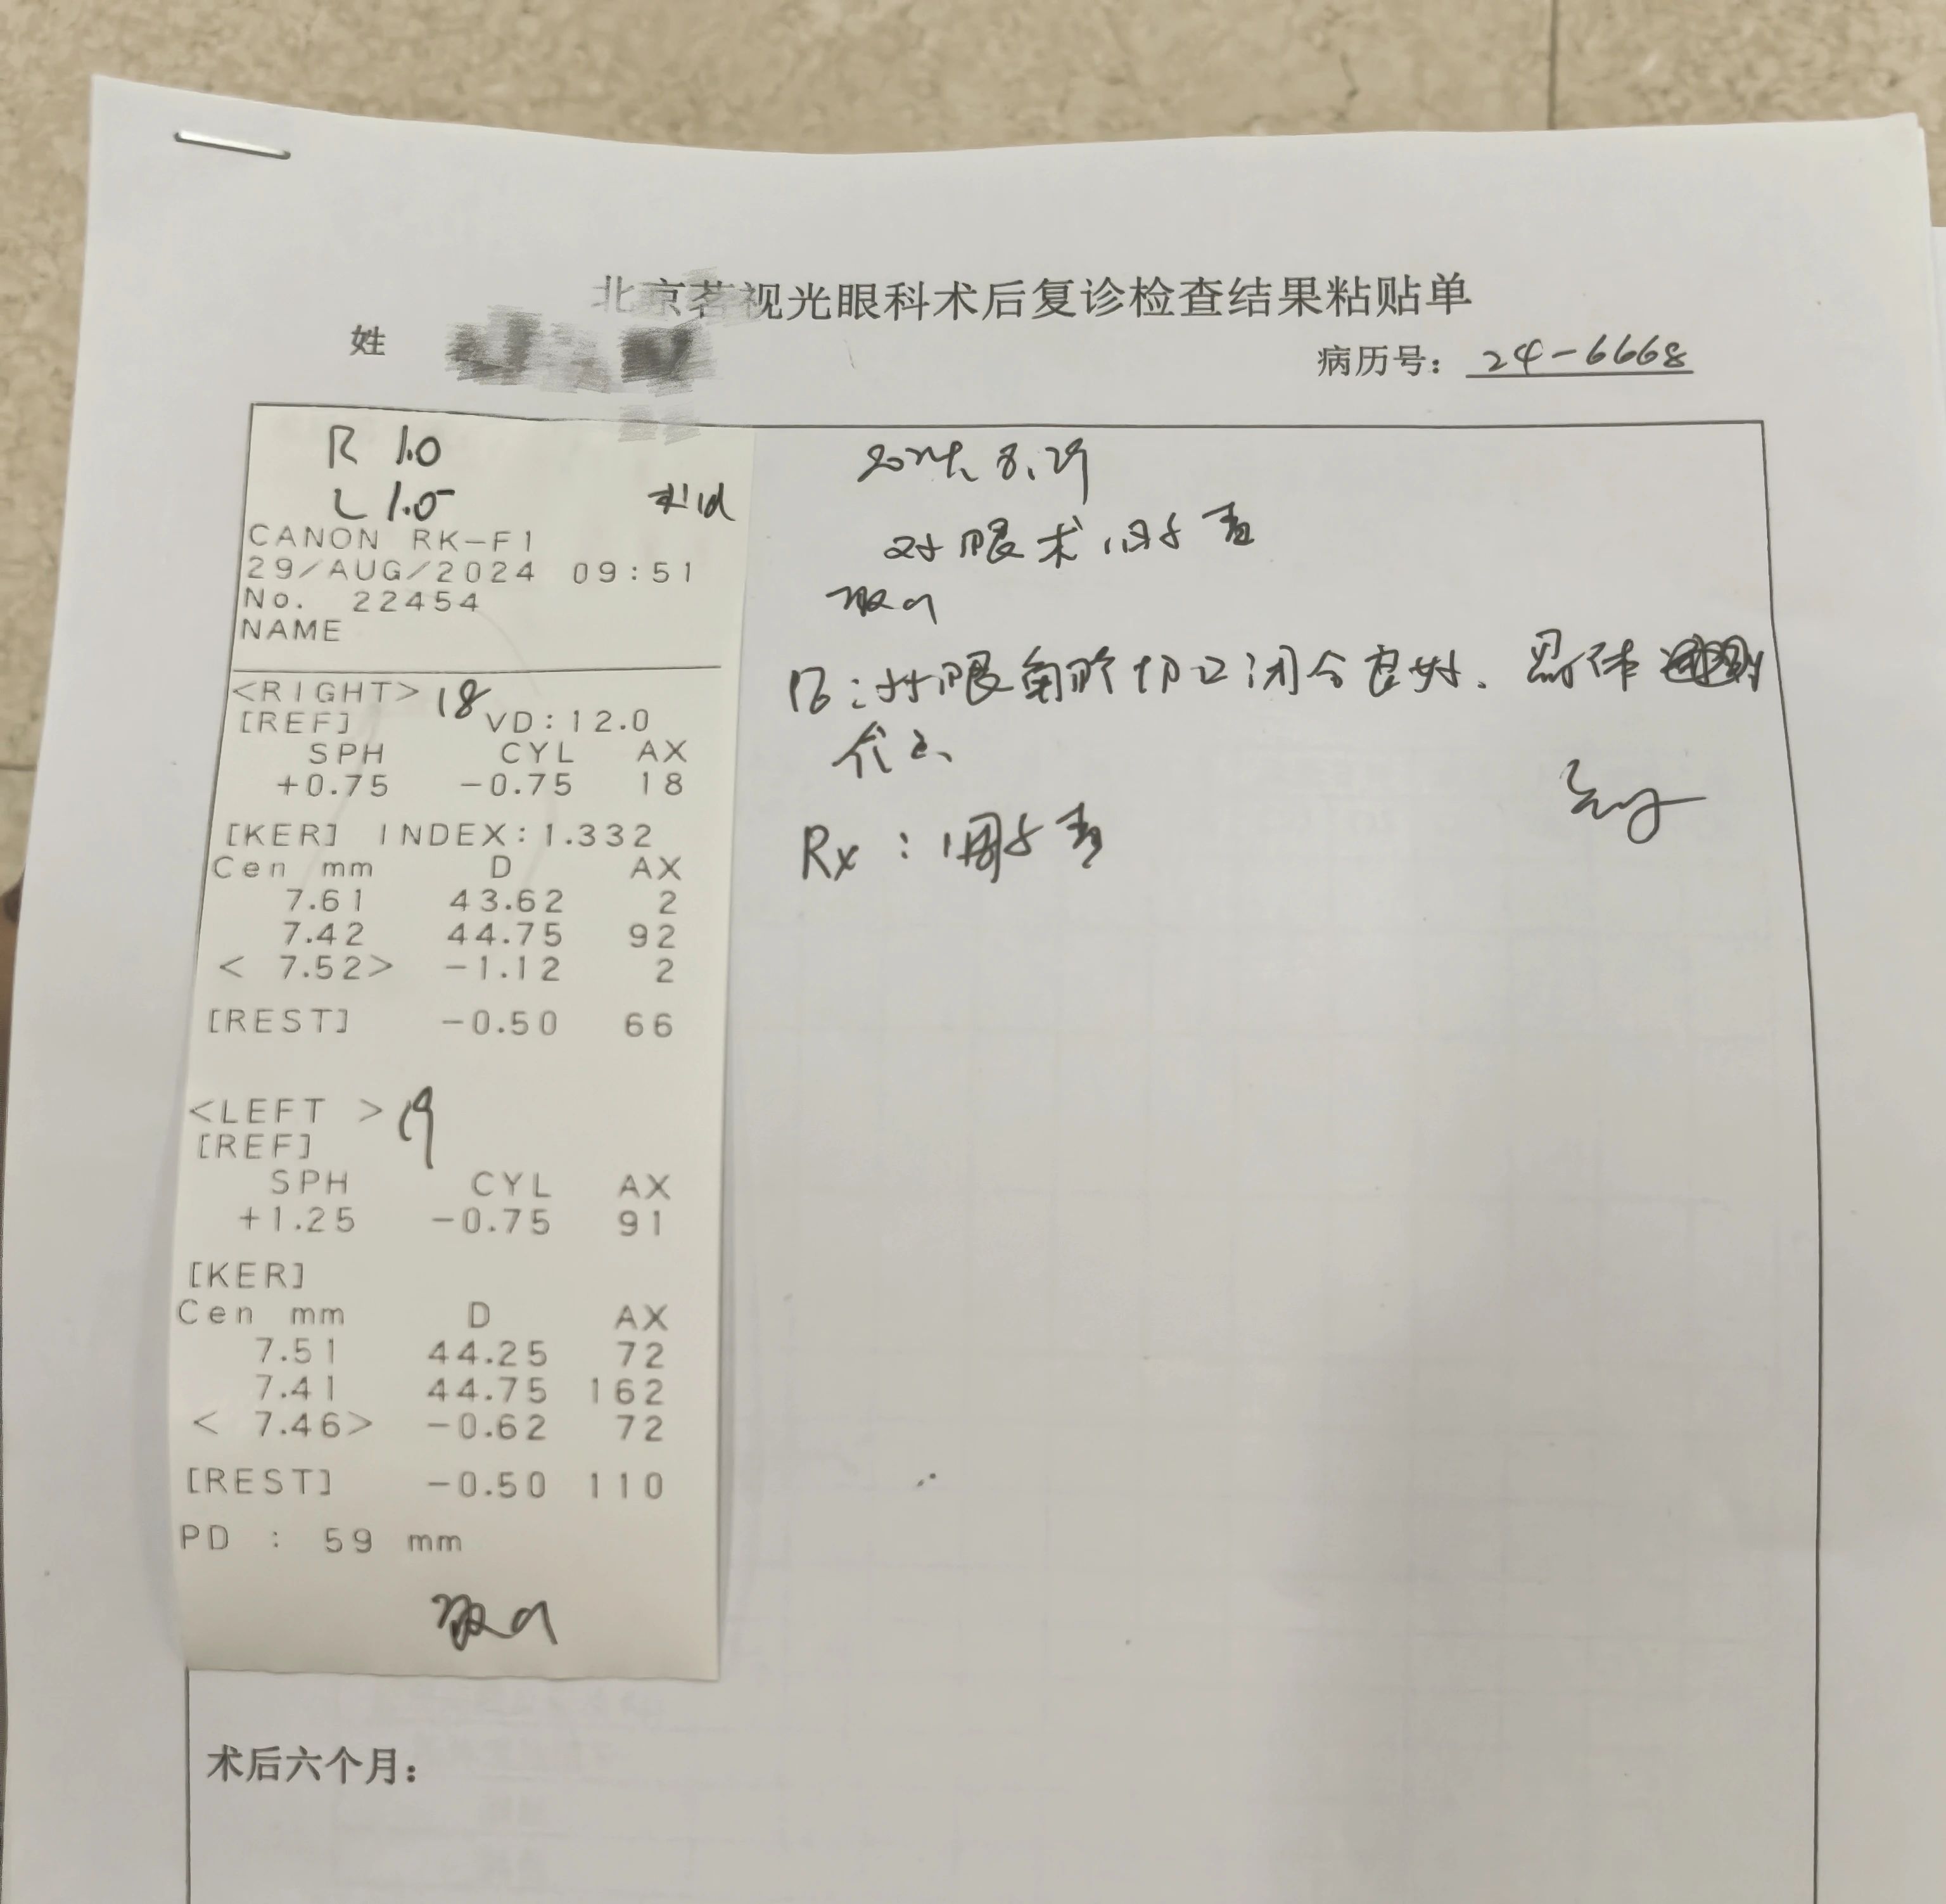 北京茗视光眼科术后复诊检查结果粘贴单
姓
病历号： 24-6668
R 1.0
L 1.0
术1d
CANON RK-F1
29/AUG/2024 09:51
No. 22454
NAME
<RIGHT> 18
[REF] VD:12.0
SPH CYL AX
+0.75 -0.75 18
[KER] INDEX:1.332
Cen mm D AX
7.61 43.62 2
7.42 44.75 92
< 7.52> -1.12 2
[REST] -0.50 66
<LEFT > 19
[REF]
SPH CYL AX
+1.25 -0.75 91
[KER]
Cen mm D AX
7.51 44.25 72
7.41 44.75 162
< 7.46> -0.62 72
[REST] -0.50 110
PD : 59 mm
2024.8.29
眼术
眼角膜切口闭合良好.
Rx :
术后六个月：